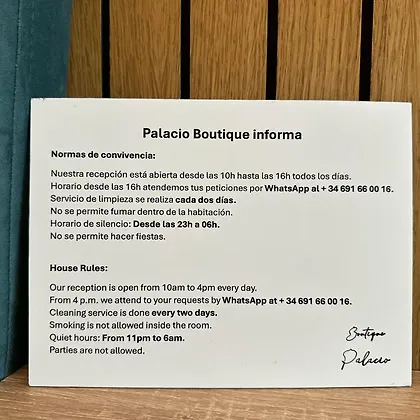 Palacio Boutique informa
Normas de convivencia:
Nuestra recepción está abierta desde las 10h hasta las 16h todos los días.
Horario desde las 16h atendemos tus peticiones por WhatsApp al + 34 691 66 00 16.
Servicio de limpieza se realiza cada dos días.
No se permite fumar dentro de la habitación.
Horario de silencio: Desde las 23h a 06h.
No se permite hacer fiestas.
House Rules:
Our reception is open from 10am to 4pm every day.
From 4 p.m. we attend to your requests by WhatsApp at + 34 691 66 00 16.
Cleaning service is done every two days.
Smoking is not allowed inside the room.
Quiet hours: From 11pm to 6am.
Parties are not allowed.
Boutique
Palacio